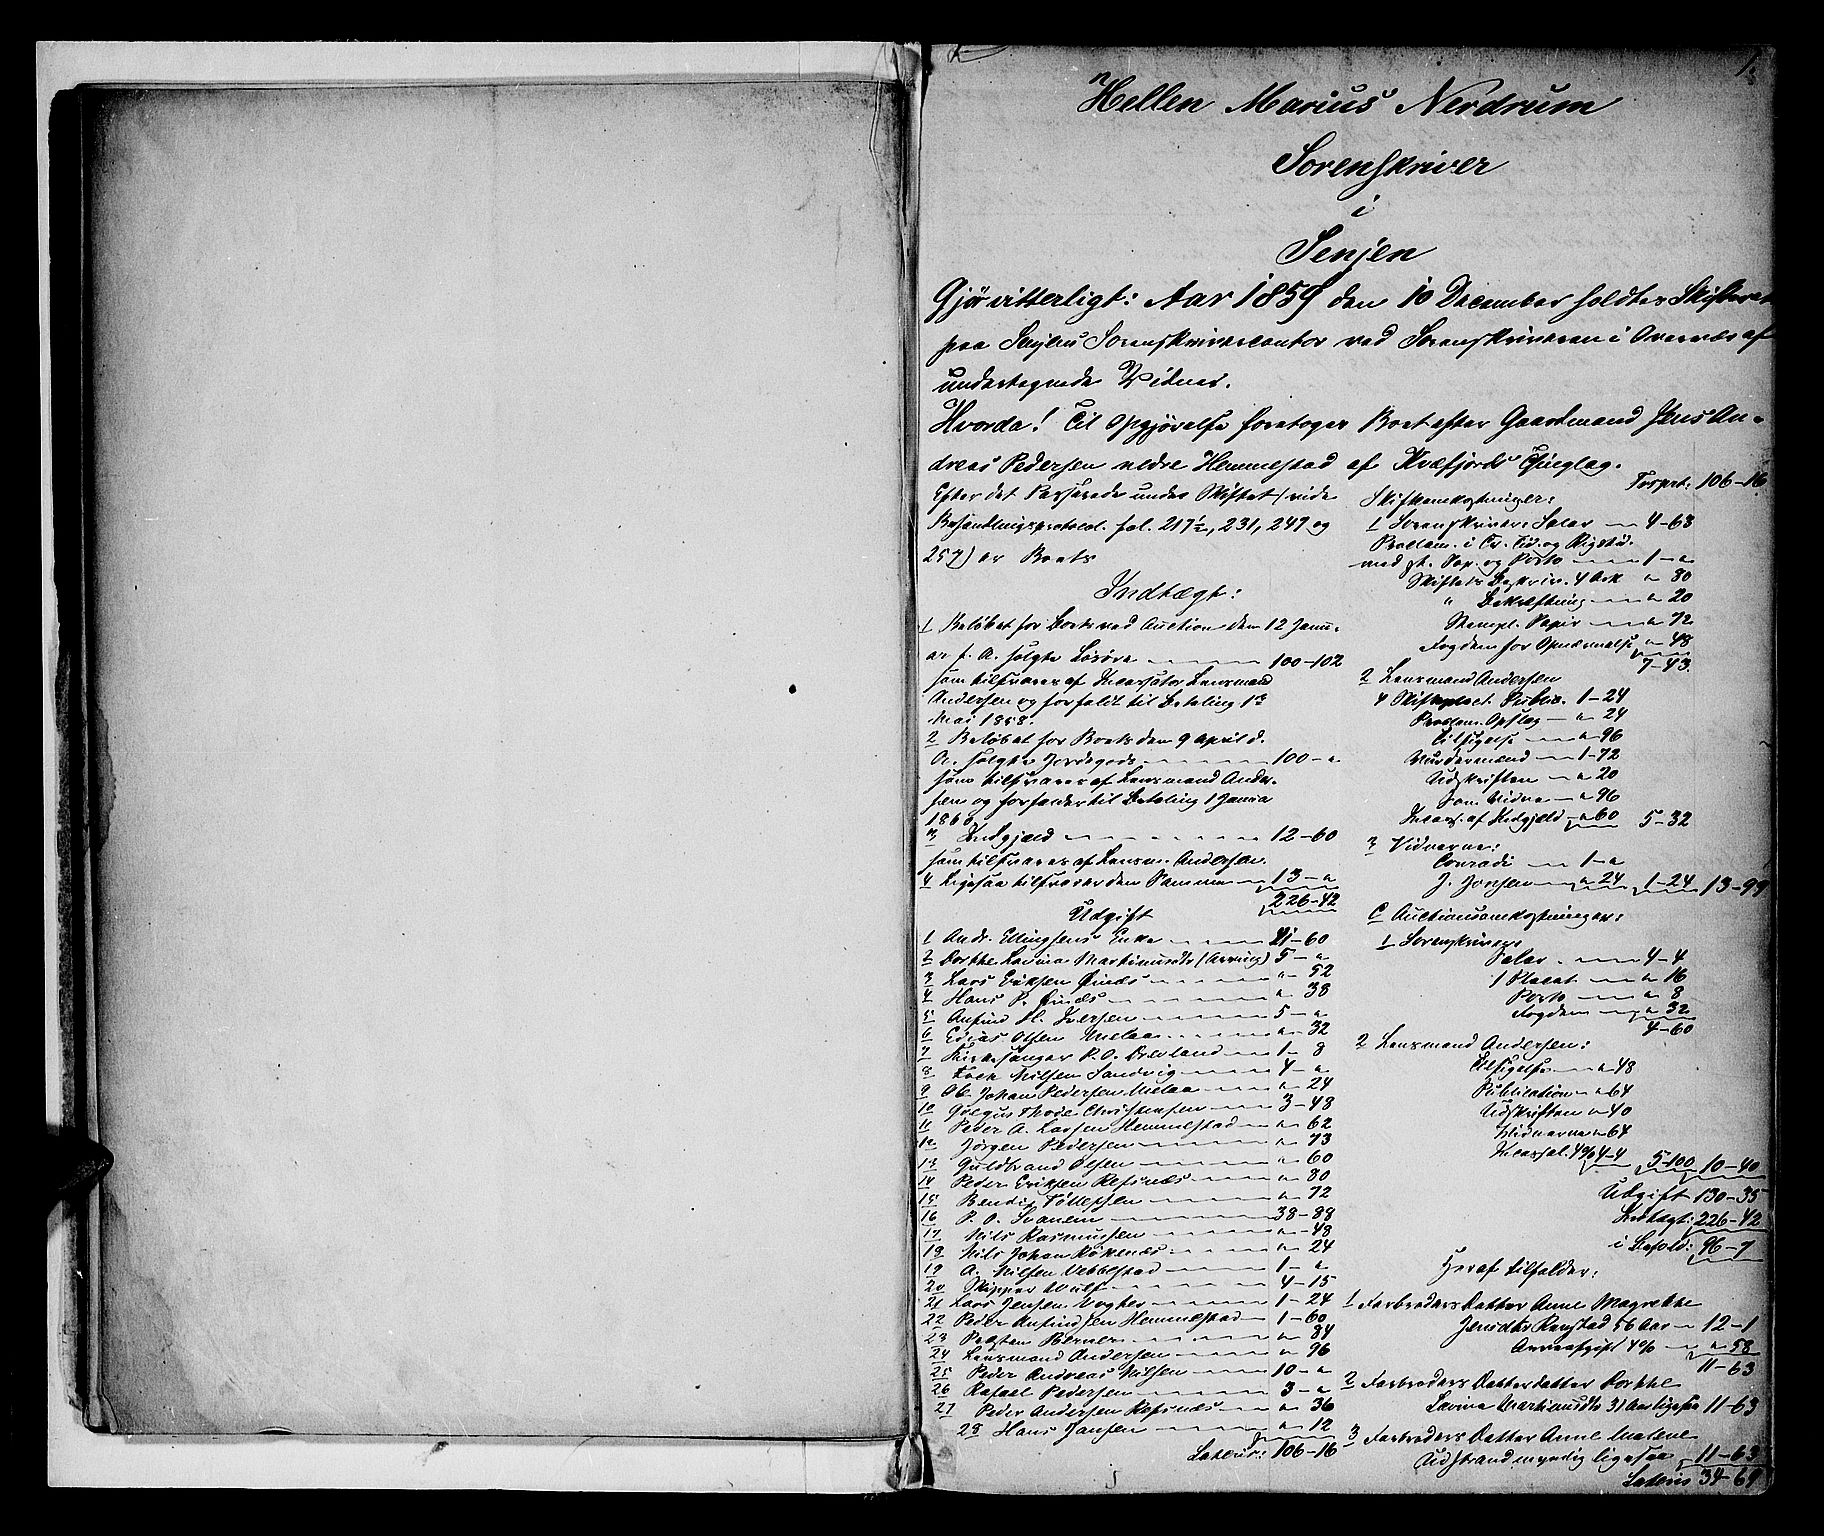 1.
Hellen Marius Nerdrum
Sorenskriver
i
Senjen
Gjør vitterligt: Aar 1859 den 10 December holdtes Skifteret
paa Senjens Sorenskrivercontor ved Sorenskriveren i Overvær af
undertegnede Vidner.
Hvorda! Til Opgjørelse foretoges Boet efter Gaardmand Jens An-
dreas Pedersen nedre Hemmestad af Kvæfjords Thinglag.
Efter det Passerede under Skiftet (vide
Behandlingsprotocol. fol. 217½, 231, 247 og
257) er Boets
Indtægt:
1 Beløbet for Boets ved Auction den 12 Janu-
ar f. A. solgte Løsøre 100-102
som tilsvares af Incassator Lensmand
Andersen og forfaldt til Betaling 1ste
Mai 1858.
2 Beløbet for Boets den 9 April d.
A. solgte Jordegods 100-"
som tilsvares af Lensmand Ander-
sen og forfalder til Betaling 1 Janua
1860
3 Indgjæld 12-60
som tilsvares af Lensm. Andersen.
4 Ligesaa tilsvarer den Samme 13-"
226-42
Udgift
1 Andr. Ellingsens Enke 21-60
2 Dorthe Lavina Martinusdtr (Arving) 5-"
3 Lars Eriksen "-52
4 Hans P. "-38
5 Anfind H. Iversen 5-"
6 Edias Olsen Melaa "-32
7 Kirkesanger P. O. Drevland 1-8
8 Nilsen Sandvig 4-"
9 Ole Johan Pedersen Melaa "-24
10 Thode Christensen 3-48
11 Peder A. Larsen Hemmestad "-62
12 Jørgen Pedersen "-73
13 Guldbrand Olsen "-60
14 Peder Eriksen Refsnæs "-80
15 Bendix Tollefsen "-72
16 P. O. Svanem 38-88
17 Nils Rasmussen "-48
18 Nils Johan Røkenæs "-24
19 A. Nilsen Vebbestad 1-"
20 Skipper Wulf 4-15
21 Lars Jensen Vogter 1-24
22 Peder Anfindsen Hemmestad 1-60
23 Præsten Berner "-84
24 Lensmand Andersen "-96
25 Peder Andreas Nilsen 10-"
26 Rafael Pedersen 3-"
27 Peder Andersen Refsnæs "-36
28 Hans Jansen "-12
Lateris: 106-16
Transprt: 106-16
Skifteomkostninger:
1 Sorenskriver: Salar 4-68
Proclam. i Tr. Tid. og Rigstid.
med st. Pap. og Porto 1-"
Skiftets Beskriv. 4 Ark "-80
" Bekræftning "-20
Stempl. Papir "-72
Fogden for Opnævnelse "-48
7-43.
2 Lensmand Andersen
4 Public. 1-24
Proclam. Opslag "-24
Tilsigelse "-96
Vurdermænd 1-72
Udskriften "-20
Som Vidne "-96
Incass. af Indgjæld "-60 5-32
3 Vidnerne:
Conradi 1-"
J. Jonsen "-24 1-24 13-99
C Auctionsomkostninger:
1 Sorenskriver
Salar 4-4
1 Placat "-16
Porto "-8
Fogden "-32
4-60
2 Lensmand Andersen:
Tilsigelse "-48
Publication "-64
Udskriften "-40
Vidnerne "-64
Incassal. 4% 4-4 5-100 10-40
Udgift 130-35
Indtægt: 226-42
i Behold: 96-7
Heraf tilfalder:
1 Farbroders Datter Anne Magrethe
Jensdtr Rogstad 56 Aar 12-1
Arveafgift 4% "-58
11-63
2 Farbroders Datterdatter Dorthe
Lavina Martinusdtr 31 Aar ligesaa 11-63
3 Farbroders Datter Anne Malene
Udstrand myndig ligesaa 11-63
Lateris 34-69